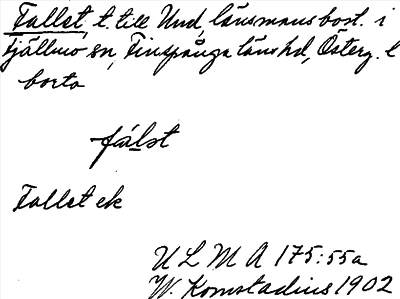 Fallet, t. till Und, länsmansbost. i
Tjällmo sn, Finspånga länshd, Österg. l
borta
fálst
Fallet ek
ULMA 175:55a
W. Komstadius 1902